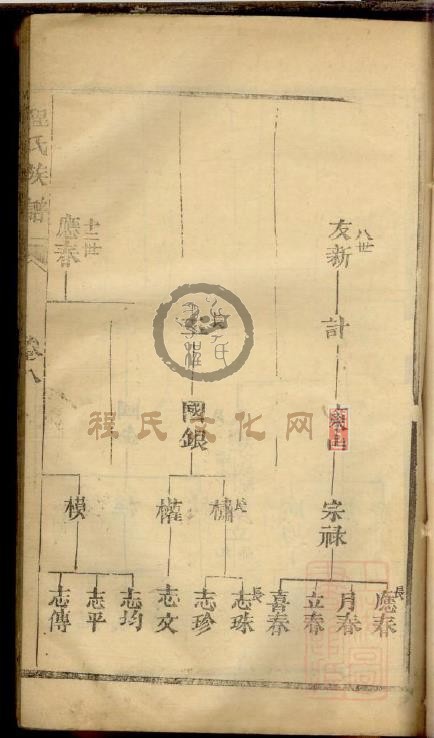 八世
友新
計
宗祿
長
應春
月春
立春
喜春
國銀
長
橚
權
模
長
志珠
志珍
志文
志均
志平
志傳
十二世
應春
程氏族譜
卷八
程氏文化网